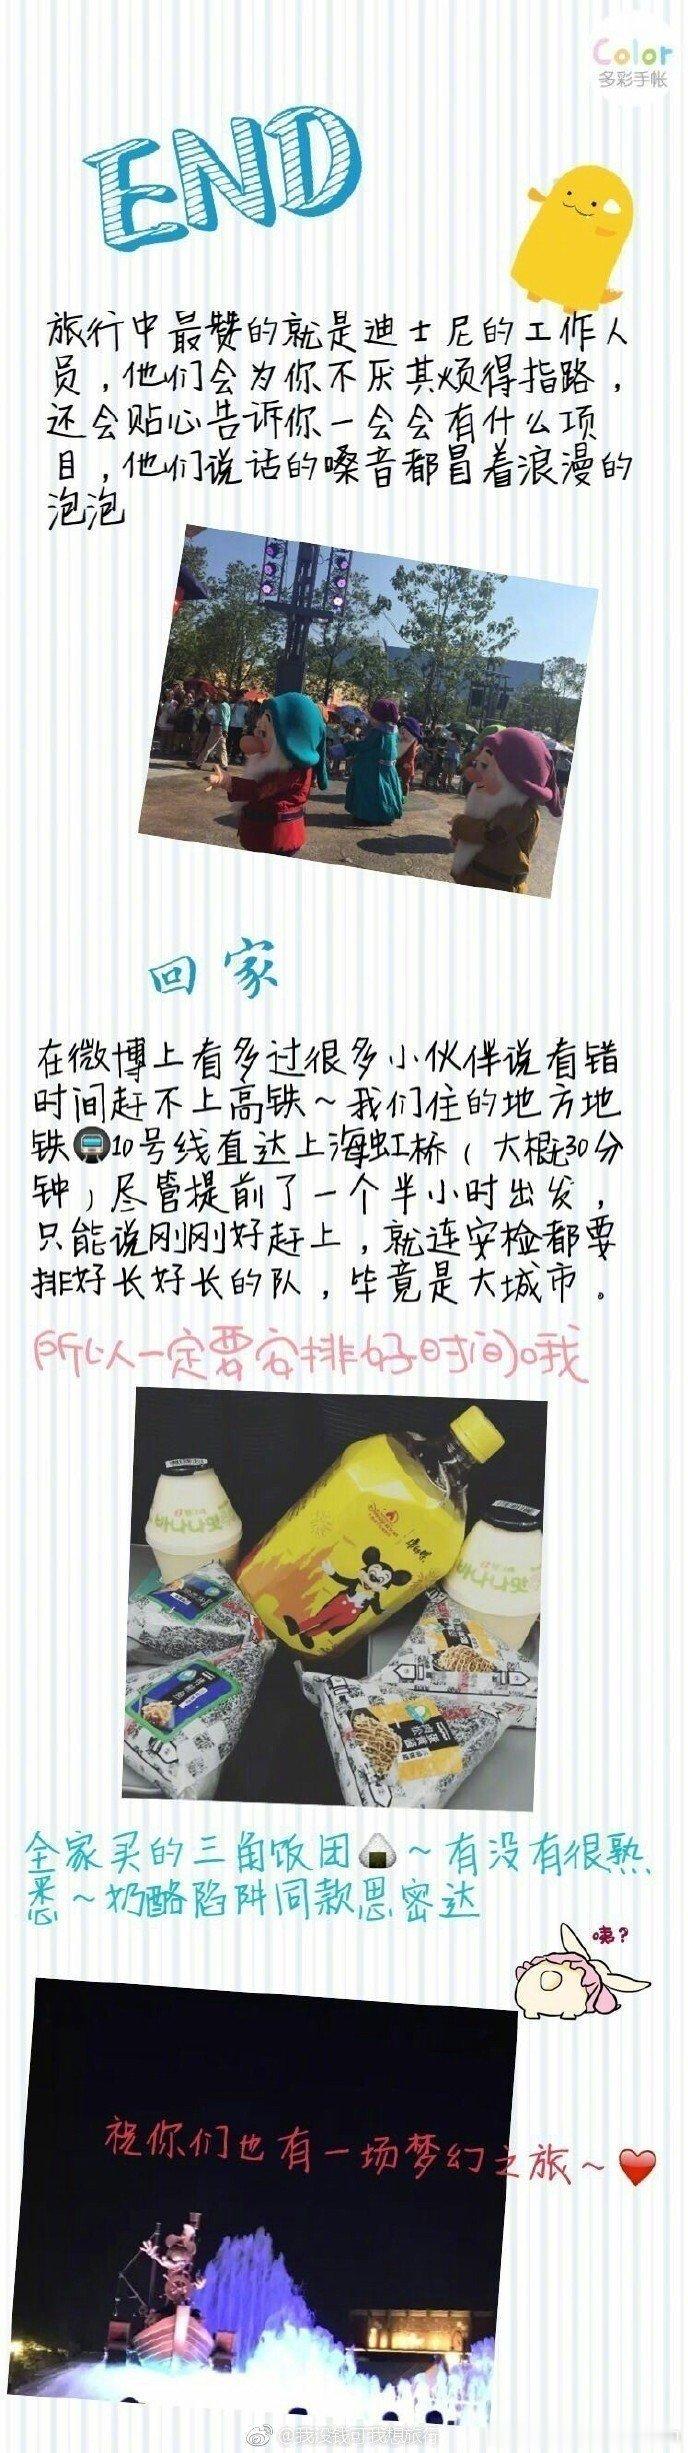 Color
多彩手帐
END
旅行中最赞的就是迪士尼的工作人
员，他们会为你不厌其烦得指路，
还会贴心告诉你一会会有什么项
目，他们说话的嗓音都冒着浪漫的
泡泡
回家
在微博上看多过很多小伙伴说看错
时间赶不上高铁~我们住的地方地
铁🚇10号线直达上海虹桥（大概30分
钟）尽管提前了一个半小时出发，
只能说刚刚好赶上，就连安检都要
排好长好长的队，毕竟是大城市。
所以一定要安排好时间哦
바나나맛
바나나맛
全家买的三角饭团🍙~有没有很熟
悉~奶酪陷阱同款思密达
咦?
祝你们也有一场梦幻之旅~❤
@我没钱可我想旅行